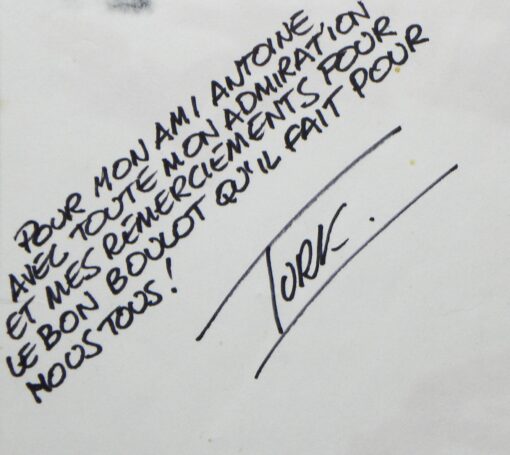 POUR MON AMI ANTOINE
AVEC TOUTE MON ADMIRATION
ET MES REMERCIEMENTS POUR
LE BON BOULOT QU'IL FAIT POUR
NOUS TOUS !
TURK.